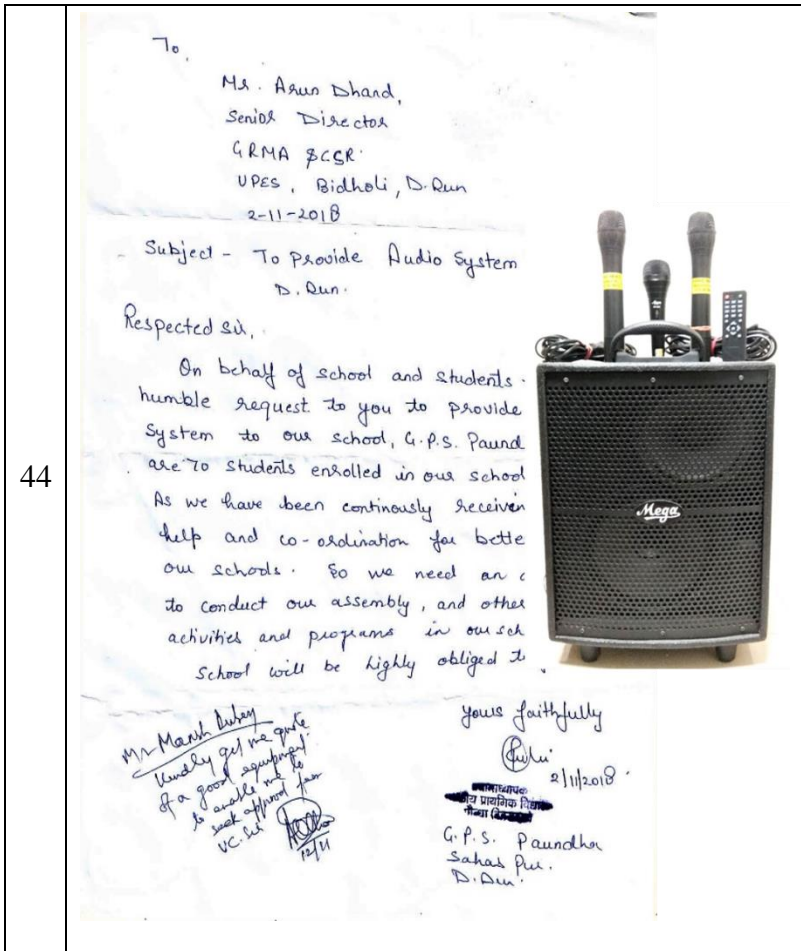 44
To,
Mr. Arun Dhand,
Senior Director
GRMA & CSR
UPES, Bidholi, D.Dun
2-11-2018
Subject - To provide Audio System
D.Dun.
Respected Sir,
On behalf of school and students
humble request to you to provide
System to our school, G.P.S. Paund
are 70 students enrolled in our school
As we have been continously receivin
help and co-ordination for bette
our schools. So we need an
to conduct our assembly, and other
activities and programs in our sch
School will be highly obliged to
Mega
Mr Manish Dubey
Kindly get me quote
of a good equipment
to enable me to
seek approval from
VC. Sir
12/11
yours faithfully
2/11/2018
प्रधानाध्यापक
प्राथमिक
G.P.S. Paundha
Sahas pur.
D.Dun.